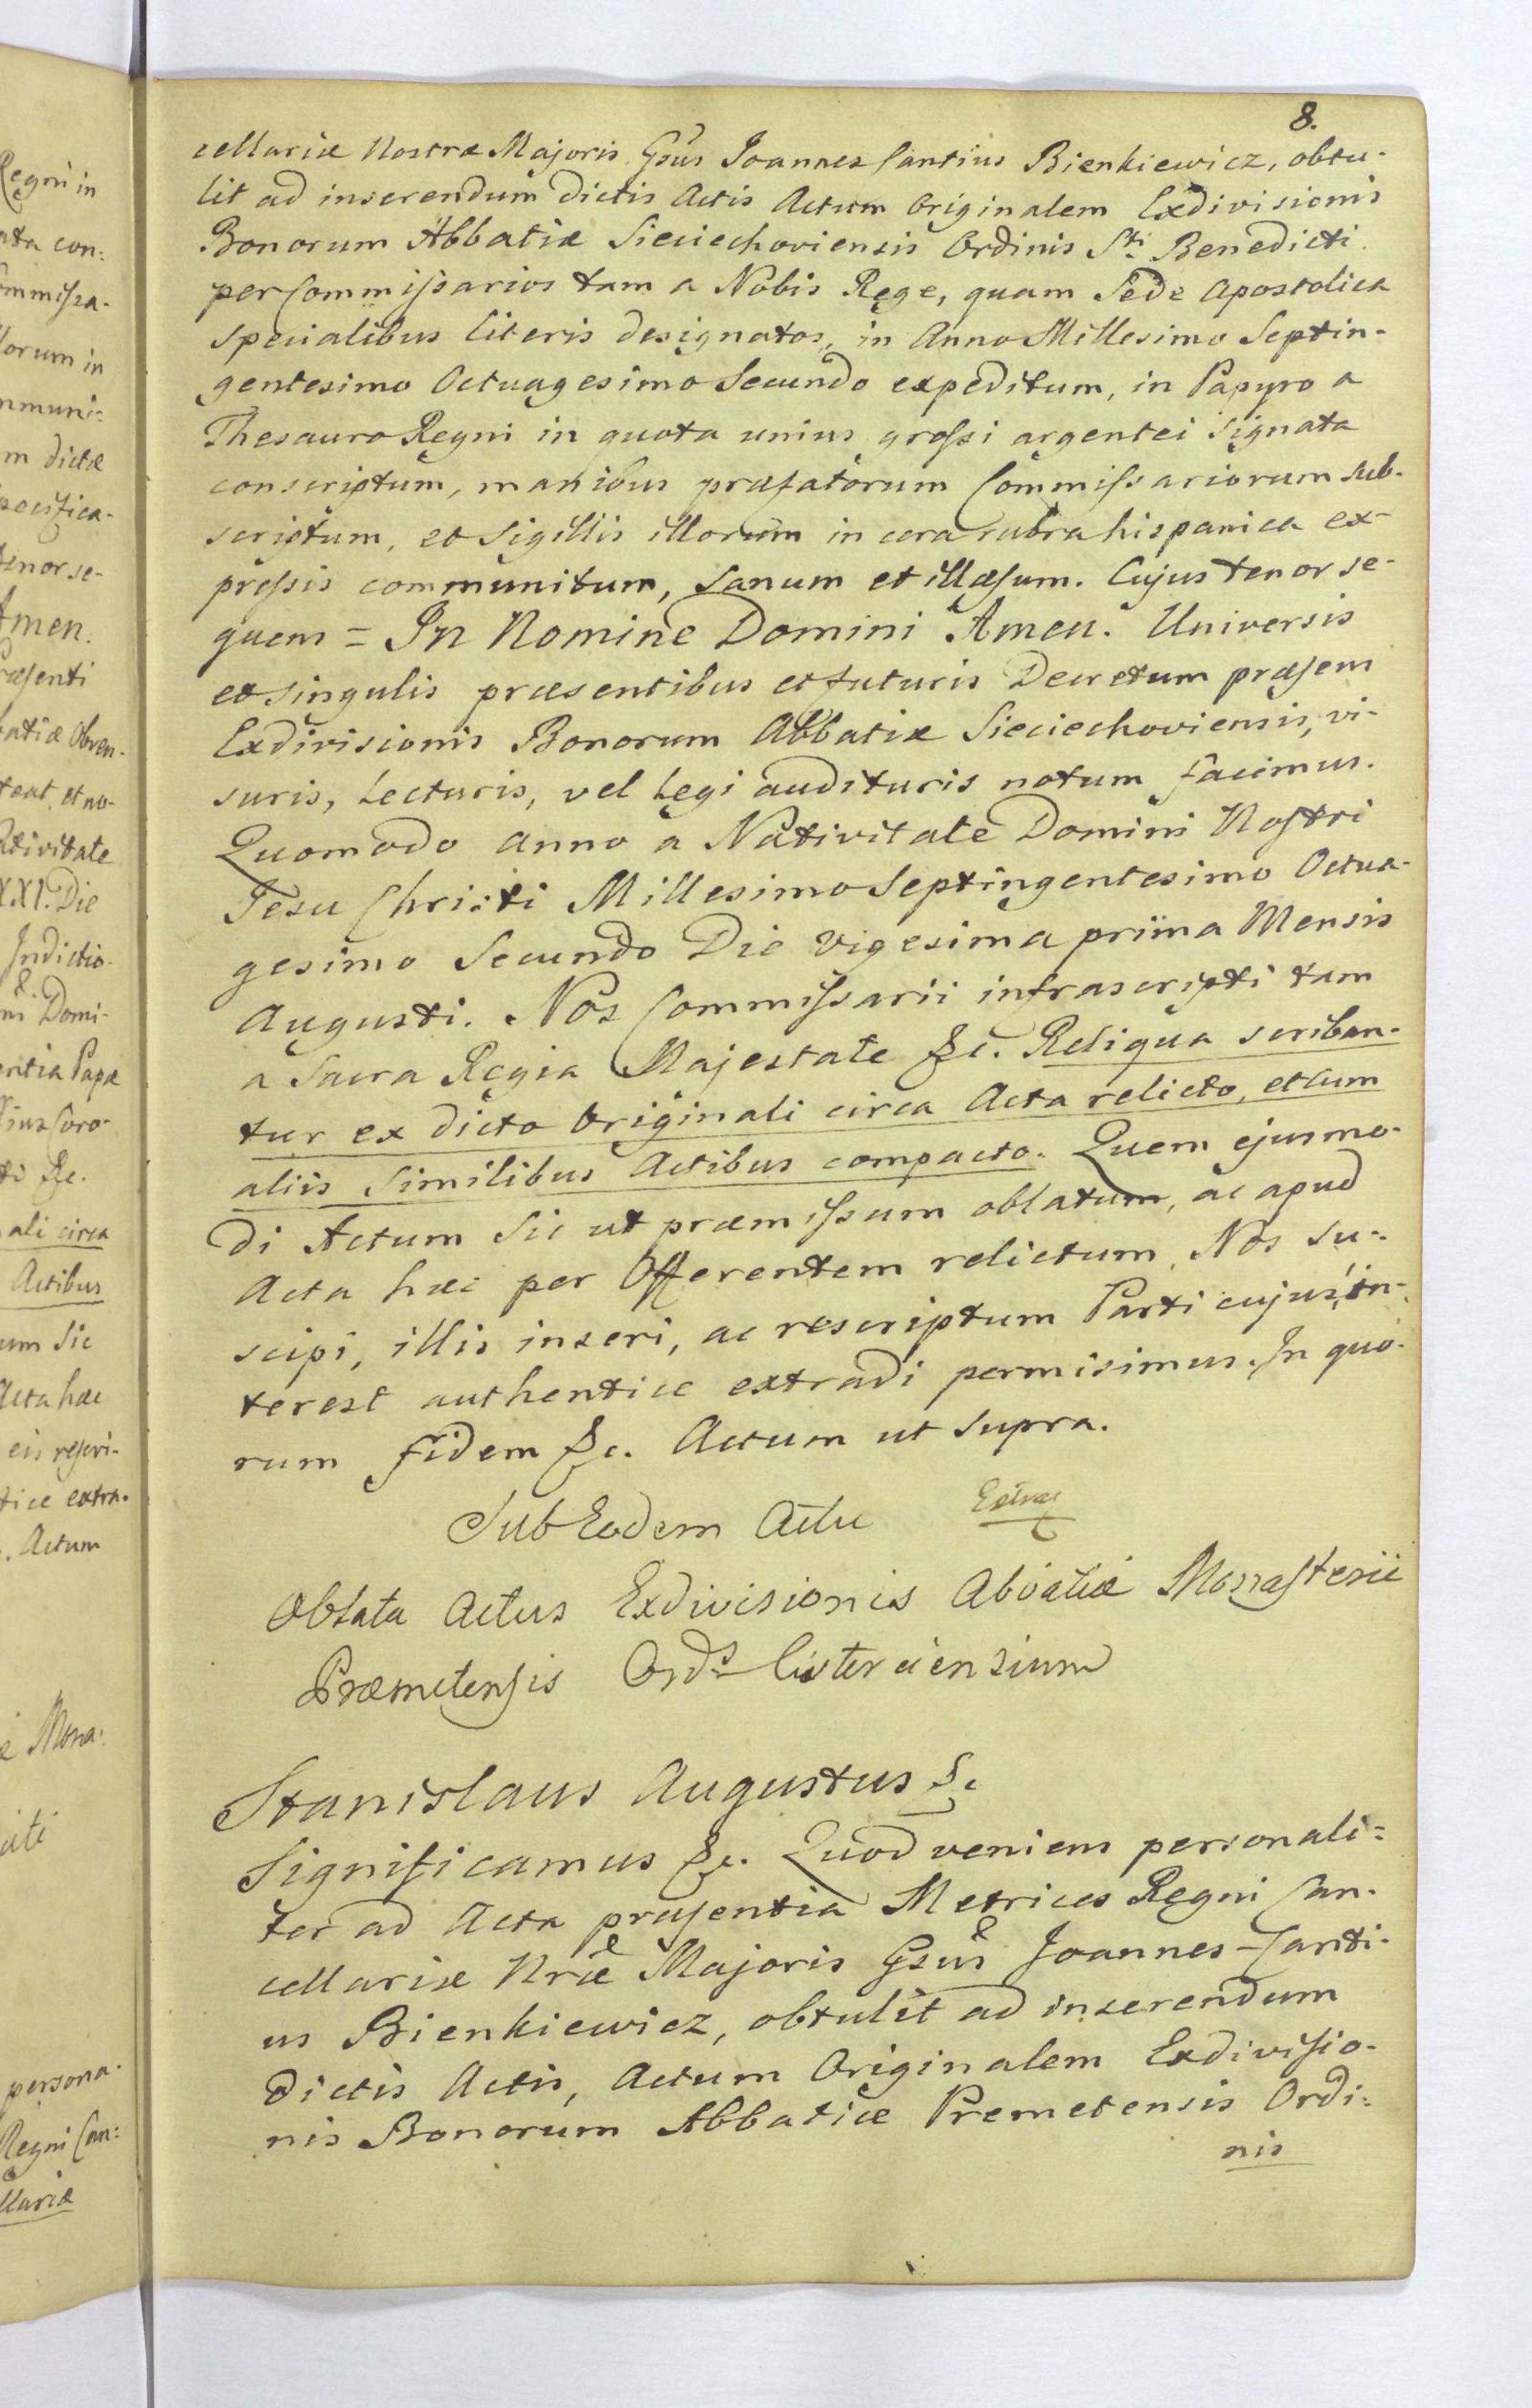 8.
cellariæ Nostræ Majoris Gsus Joannes Cantius Bienkiewicz, obtu-
lit ad inserendum dictis Actis Actum Originalem Exdivisionis
Bonorum Abbatiæ Sieciechoviensis Ordinis Sti Benedicti
per Commissarios tam a Nobis Rege, quam Sede Apostolica
specialibus literis designatos, in Anno Millesimo Septin-
gentesimo Octuagesimo Secundo expeditum, in Papyro a
Thesauro Regni in quota unius grossi argentei signata
conscriptum, manibus præfatorum Commissariorum sub-
scriptum, et sigillis illorum in cera rubra hispanica ex-
pressis communitum, sanum et illæsum. Cujus tenor se-
quens = In Nomine Domini Amen. Universis
et singulis præsentibus et futuris Decretum præsens
Exdivisionis Bonorum Abbatiæ Sieciechoviensis, vi-
suris, lecturis, vel legi audituris notum facimus.
Quomodo Anno a Nativitate Domini Nostri
Jesu Christi Millesimo Septingentesimo Octua-
gesimo Secundo Die vigesima prima Mensis
Augusti. Nos Commissarii infrascripti tam
a Sacra Regia Majestate &c. Reliqua scriban-
tur ex dicto Originali circa Acta relicto, et cum
aliis similibus Actibus compacto. Quem ejusmo-
di Actum sic ut præmissum oblatum, ac apud
Acta hæc per Offerentem relictum, Nos su-
scipi, illis inseri, ac rescriptum Parti cujus in-
terest authentice extradi permisimus. In quo-
rum fidem &c. Actum ut supra.
Sub Eodem Actu
Oblata Actus Exdivisionis Abbatiæ Monasterii
Præmetensis Ords Cisterciensium
Stanislaus Augustus &c
Significamus &c. Quod veniens personali=
ter ad Acta præsentia Metrices Regni Can-
cellariæ Nræ Majoris Gsus Joannes Canti-
us Bienkiewicz, obtulit ad inserendum
dictis Actis, Actum Originalem Exdivisio-
nis Bonorum Abbatiæ Premetensis Ordi=
nis